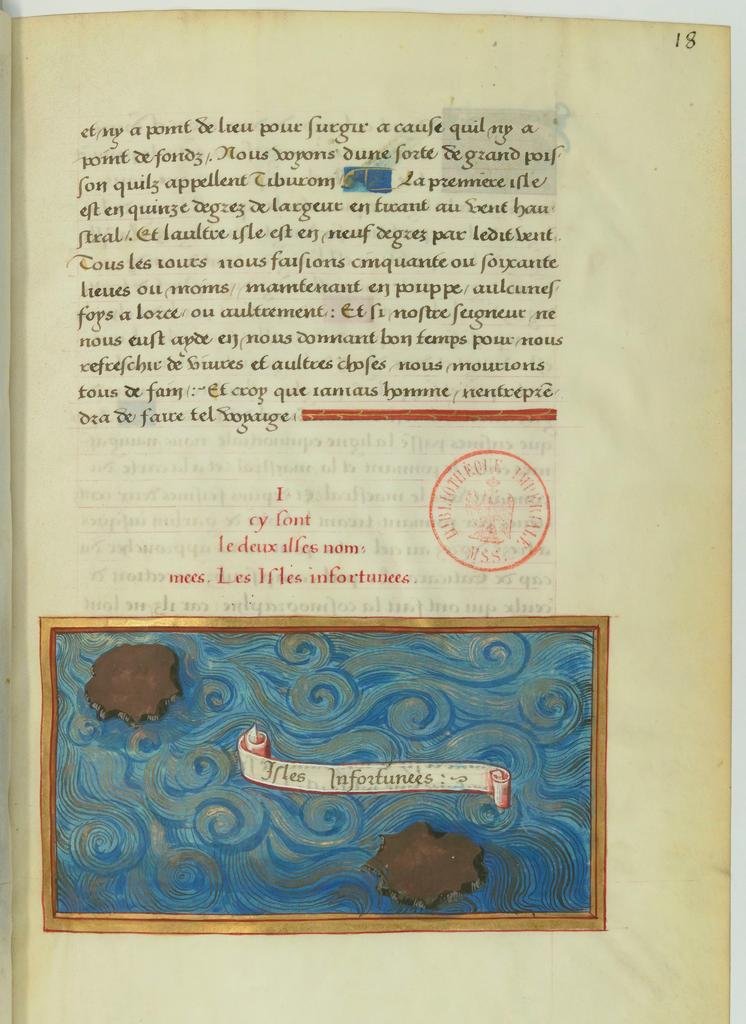 18
et ny a point de lieu pour surgir a cause quil ny a
point de fondz /. Nous voyons dune sorte de grand pois
son quilz appellent Tiburoni La premiere isle
est en quinze degrez de largeur en tirant au vent hau
stral /. Et laultre isle est en neuf degrez par ledit vent.
Tous les iours nous faisions cinquante ou soixante
lieues ou moins / maintenant en pouppe / aulcunes
foys a lorce / ou aultrement : Et si nostre seigneur ne
nous eust ayde en nous donnant bon temps pour nous
refreschir de viures et aultres choses nous mourions
tous de fain :~ Et croy que iamais homme nentreprẽ
dra de faire tel voyaige
I
cy sont
le deux isles nom:
mees. Les Isles infortunees.
BIBLIOTHÈQUE IMPÉRIALE
MSS.
Isles Infortunees :~